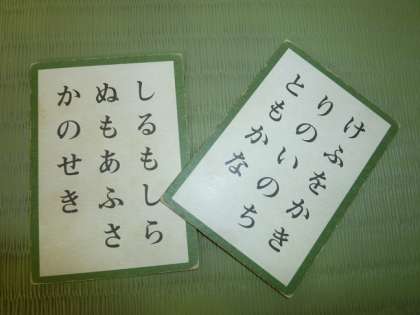 しるもしら
ぬもあふさ
かのせき
けふをかき
りのいのち
ともかな